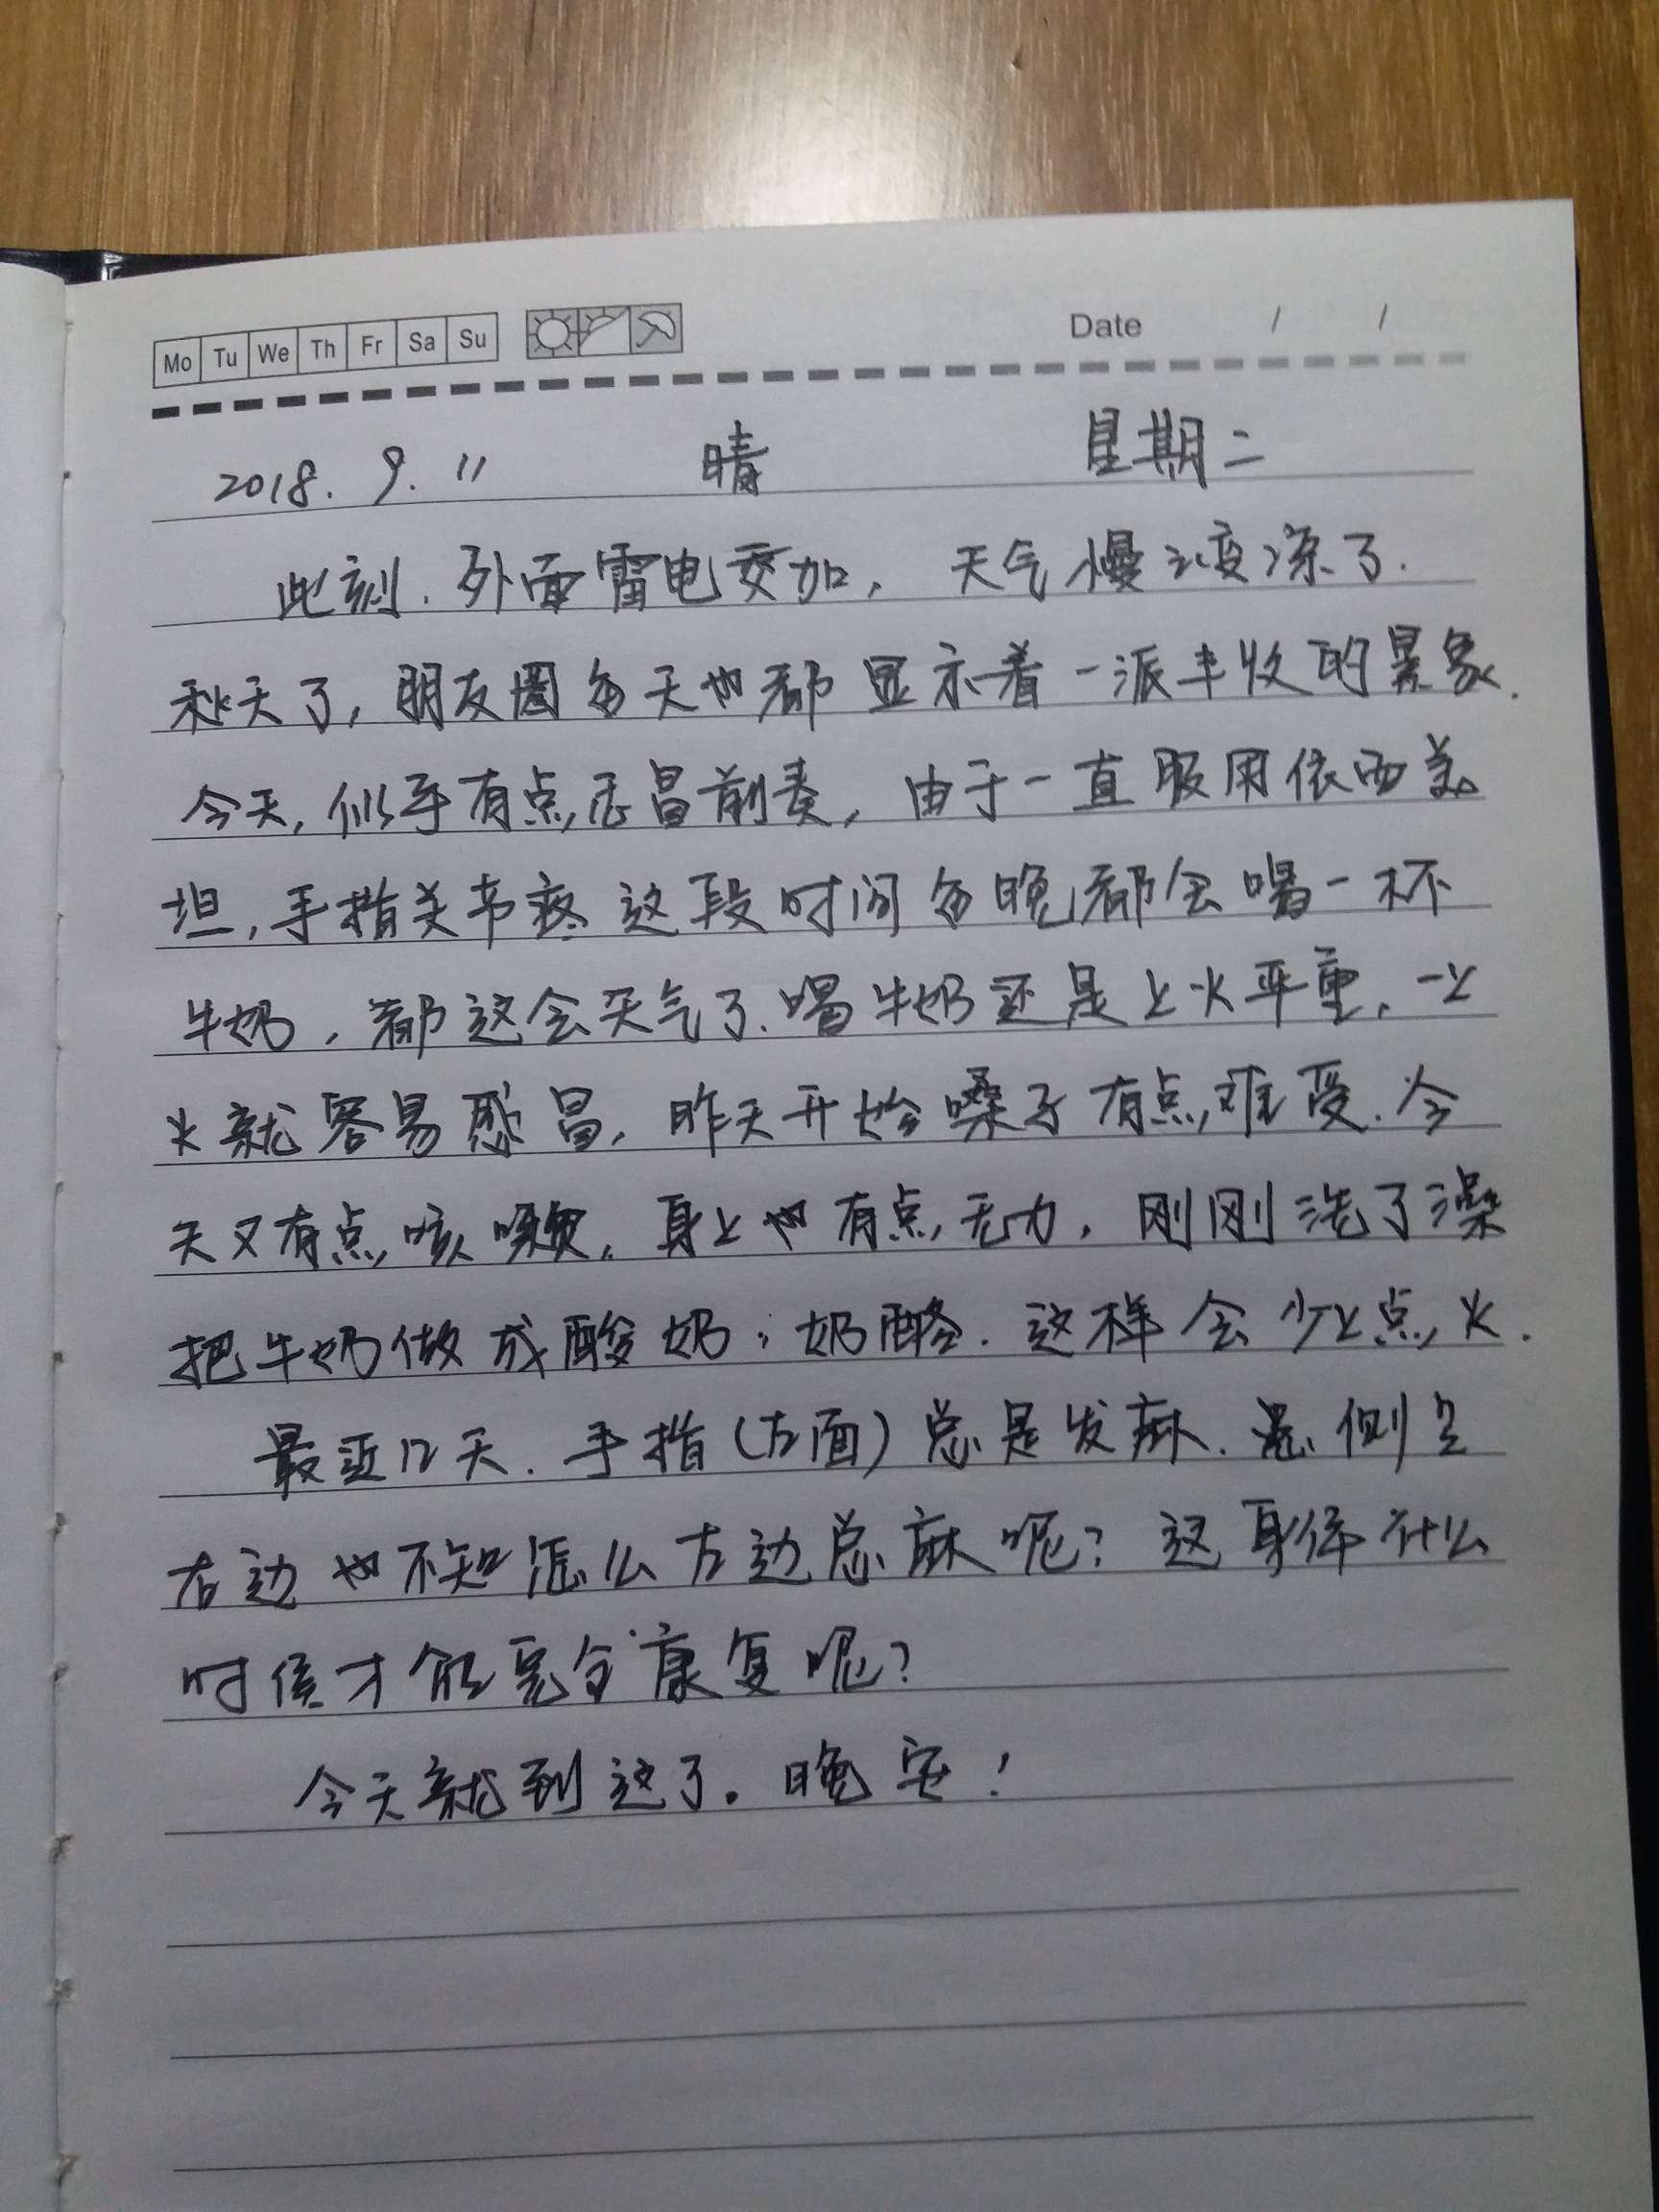 Mo Tu We Th Fr Sa Su Date / /
2018.9.11 晴 星期二
此刻.外面雷电交加,天气慢々变凉了.
秋天了,朋友圈每天也都显示着一派丰收的景象.
今天,似乎有点感冒前奏,由于一直服用依西美
坦,手指关节疼 这段时间每晚都会喝一杯
牛奶,都这会天气了.喝牛奶还是上火严重,一上
火就容易感冒,昨天开始嗓子有点难受.今
天又有点咳嗽,身上也有点无力,刚刚洗了澡
把牛奶做成酸奶,奶酪.这样会少上点火.
最近几天.手指(左面)总是发麻.侧
右边也不知怎么左边总麻呢?这身体什么
时侯才能完全康复呢?
今天就到这了。晚安!